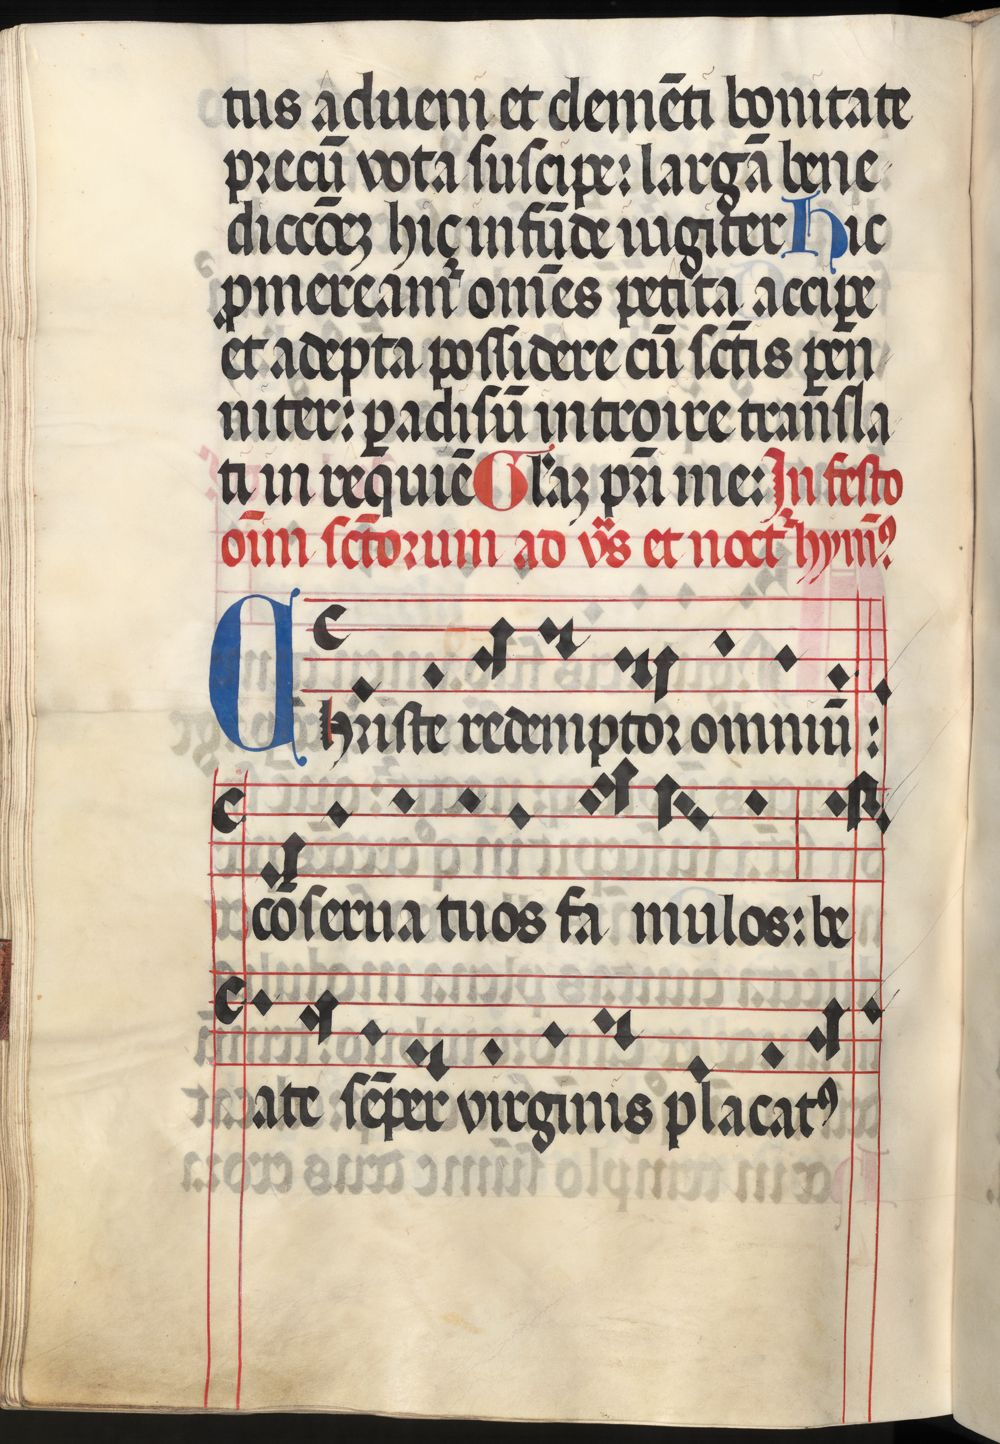 tus adueni et clemēti bonitate
precū vota suscipe: largā bene
diccōeʒ hic infūde iugiter Hic
ꝓmereant᷑ omn̄es petita accipe
et adepta possidere cū sct̄is peren
niter: ꝑadisū introire transla
ti in requiē Gl'aʒ pr̄i me: In festo
oīm sct̄orum ad vr̄s et noct᷑ hymꝰ
Christe redemptor omniū:
cōserua tuos fa mulos: be
ate sēper virginis placatꝰ